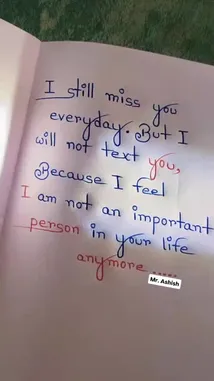 I still miss you
everyday. But I
will not text you,
Because I feel
I am not an important
person in your life
anymore .....
Mr. Ashish